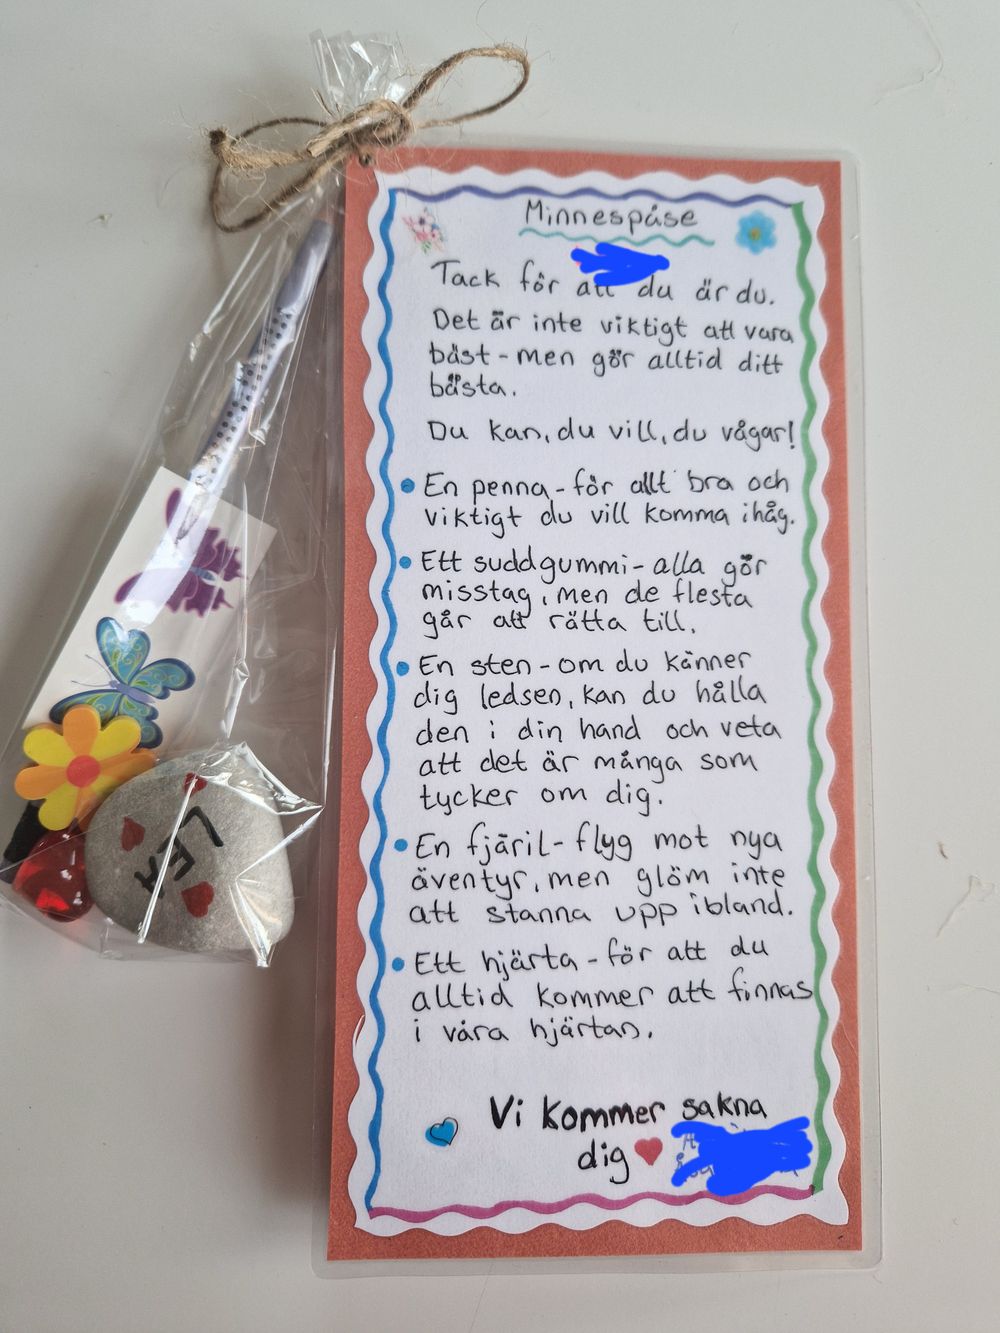 Minnespåse
Tack för att du är du.
Det är inte viktigt att vara
bäst - men gör alltid ditt
bästa.
Du kan, du vill, du vågar!
• En penna - för allt bra och
viktigt du vill komma ihåg.
• Ett suddgummi - alla gör
misstag, men de flesta
går att rätta till.
• En sten - om du känner
dig ledsen, kan du hålla
den i din hand och veta
att det är många som
tycker om dig.
• En fjäril - flyg mot nya
äventyr, men glöm inte
att stanna upp ibland.
• Ett hjärta - för att du
alltid kommer att finnas
i våra hjärtan.
Vi kommer sakna
dig
LEA